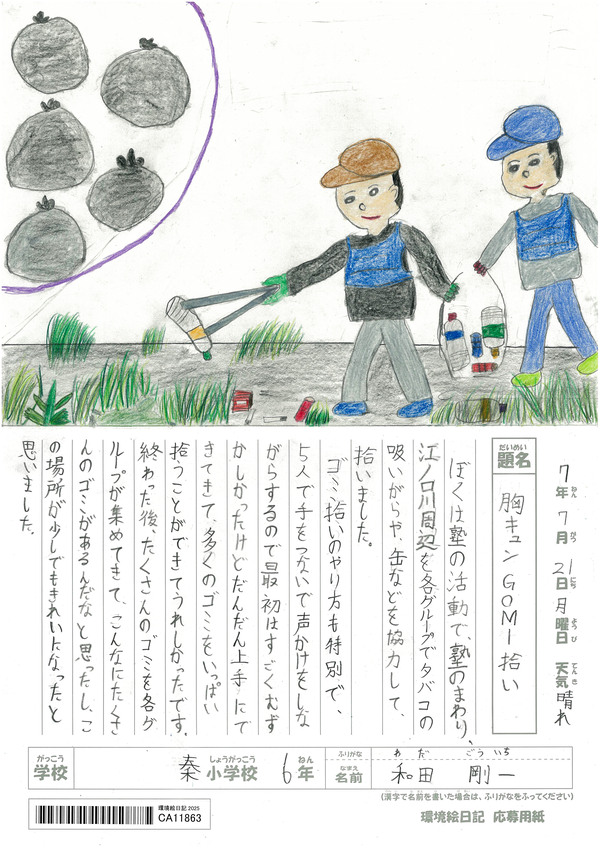 7年7月21日月曜日 天気 晴れ
ねん がつ にち ようび てんき
題名 胸キュンGOMI拾い
だいめい
ぼくは塾の活動で、塾のまわり、
江ノ口川周辺を各グループでタバコの
吸いがらや、缶などを協力して、
拾いました。
ゴミ拾いのやり方も特別で、
5人で手をつないで声かけをしな
がらするので最初はすごくむず
かしかったけどだんだん上手にで
きてきて、多くのゴミをいっぱい
拾うことができてうれしかったです。
終わった後、たくさんのゴミを各グ
ループが集めてきて、こんなにたくさ
んのゴミがあるんだなと思ったし、こ
の場所が少しでもきれいになったと
思いました。
がっこう しょうがっこう ねん ふりがな わだ ごういち
学校 秦小学校 6年 なまえ 名前 和田 剛一
(漢字で名前を書いた場合は、ふりがなをふってください)
環境絵日記 2025
CA11863
環境絵日記 応募用紙